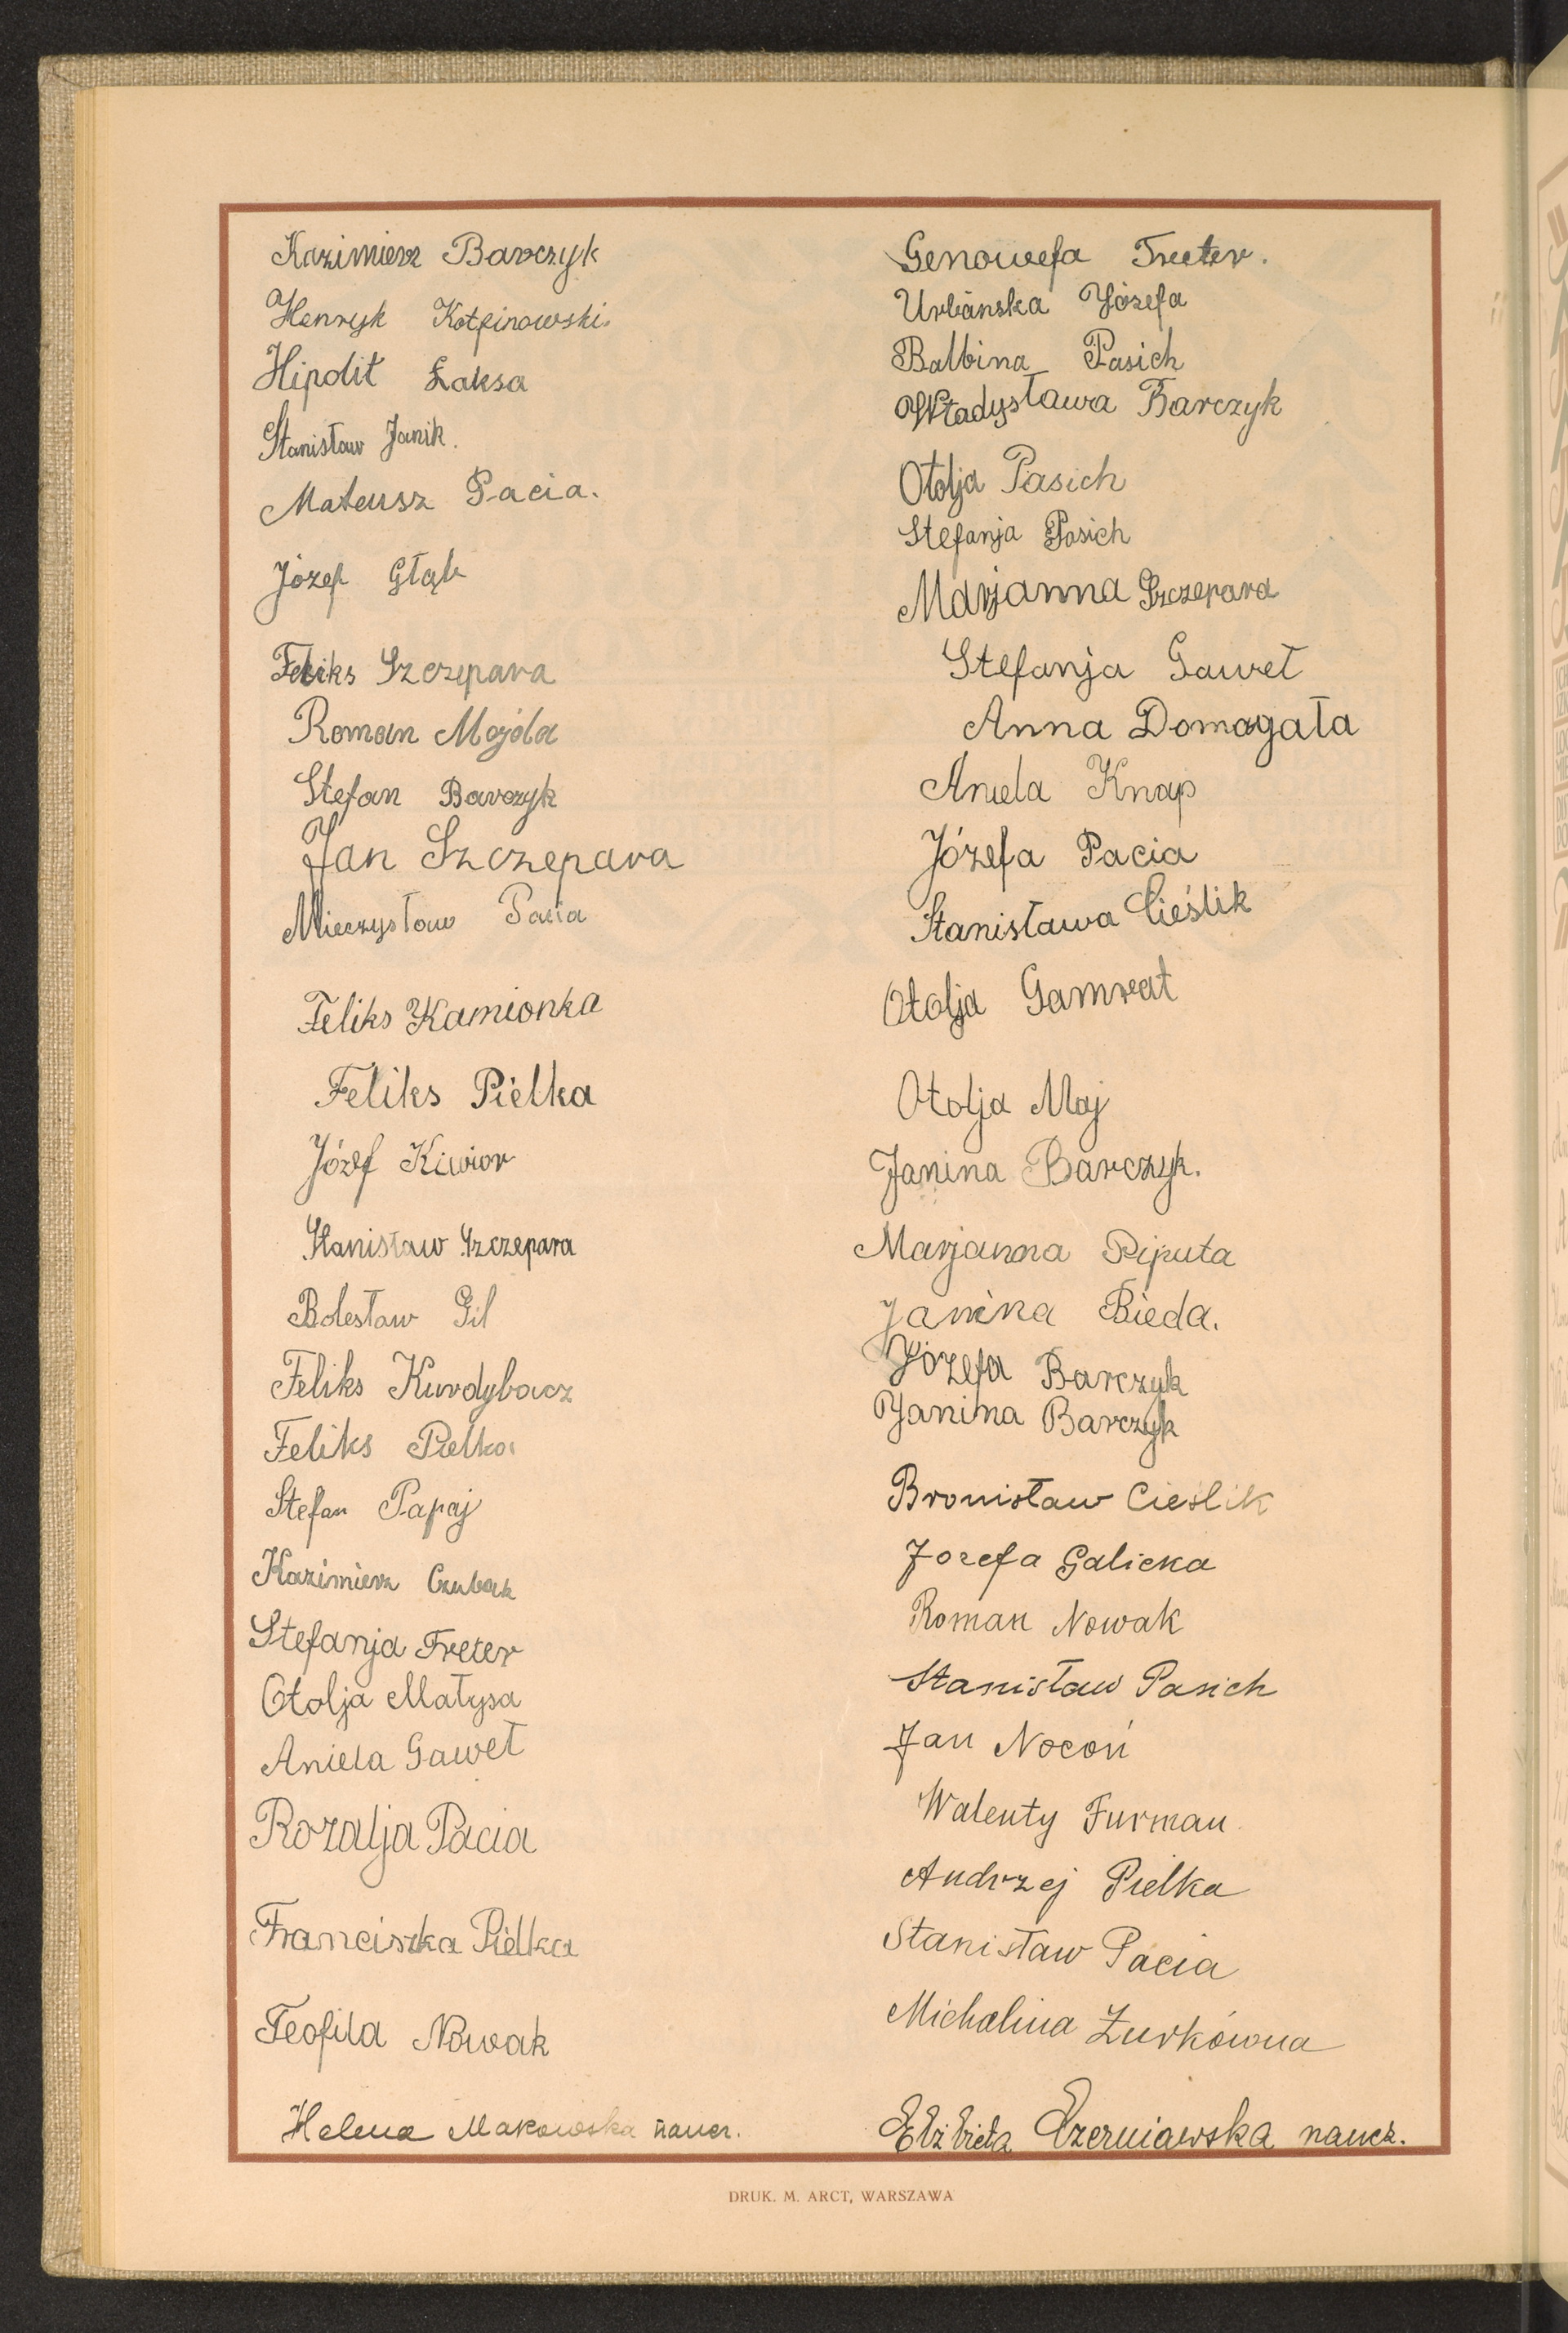 Kazimierz Barczyk
Henryk Kotfinowski.
Hipolit Łaksa
Stanisław Janik.
Mateusz Pacia.
Józef Głąb
Feliks Szczepara
Roman Mojda
Stefan Barczyk
Jan Szczepara
Mieczysław Pacia
Feliks Kamionka
Feliks Pielka
Józef Kiwior
Stanisław Szczepara
Bolesław Gil
Feliks Kurdybacz
Feliks Pielka
Stefan Papaj
Kazimierz Czubak
Stefanja Freter
Otolja Małysa
Aniela Gaweł
Rozalja Pacia
Franciszka Pielka
Teofila Nowak
Helena Makowska naucz.
Genowefa Treter.
Urbańska Józefa
Balbina Pasich
Władysława Barczyk
Otolja Pasich
Stefanja Pasich
Marjanna Szczepara
Stefanja Gaweł
Anna Domagała
Aniela Knap
Józefa Pacia
Stanisława Cieślik
Otolja Gamrat
Otolja Maj
Janina Barczyk.
Marjanna Piputa
Janina Bieda.
Józefa Barczyk
Janina Barczyk
Bronisław Cieślik
Jozefa Galicka
Roman Nowak
Stanisław Pasich
Jan Nocoń
Walenty Furman
Andrzej Pielka
Stanisław Pacia
Michalina Żurkówna
Elżbieta Czerniawska naucz.
DRUK. M. ARCT, WARSZAWA